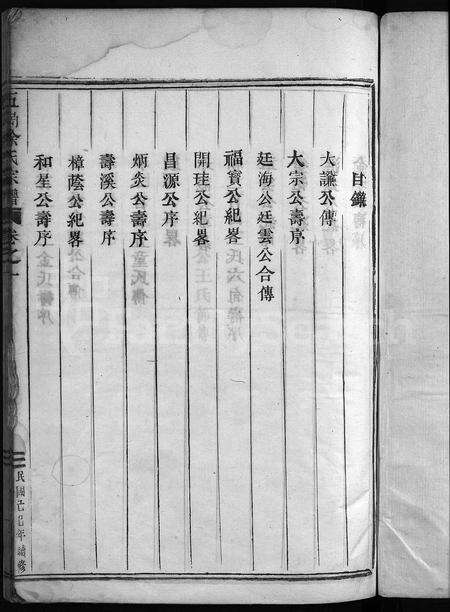 目錄
大謙公傳
大宗公壽序
廷海公廷雲公合傳
福寶公紀畧
開珪公紀畧
昌源公序
炳炎公壽序
壽溪公壽序
樟蔭公紀畧
和星公壽序
余氏宗譜
民國廿七年續修